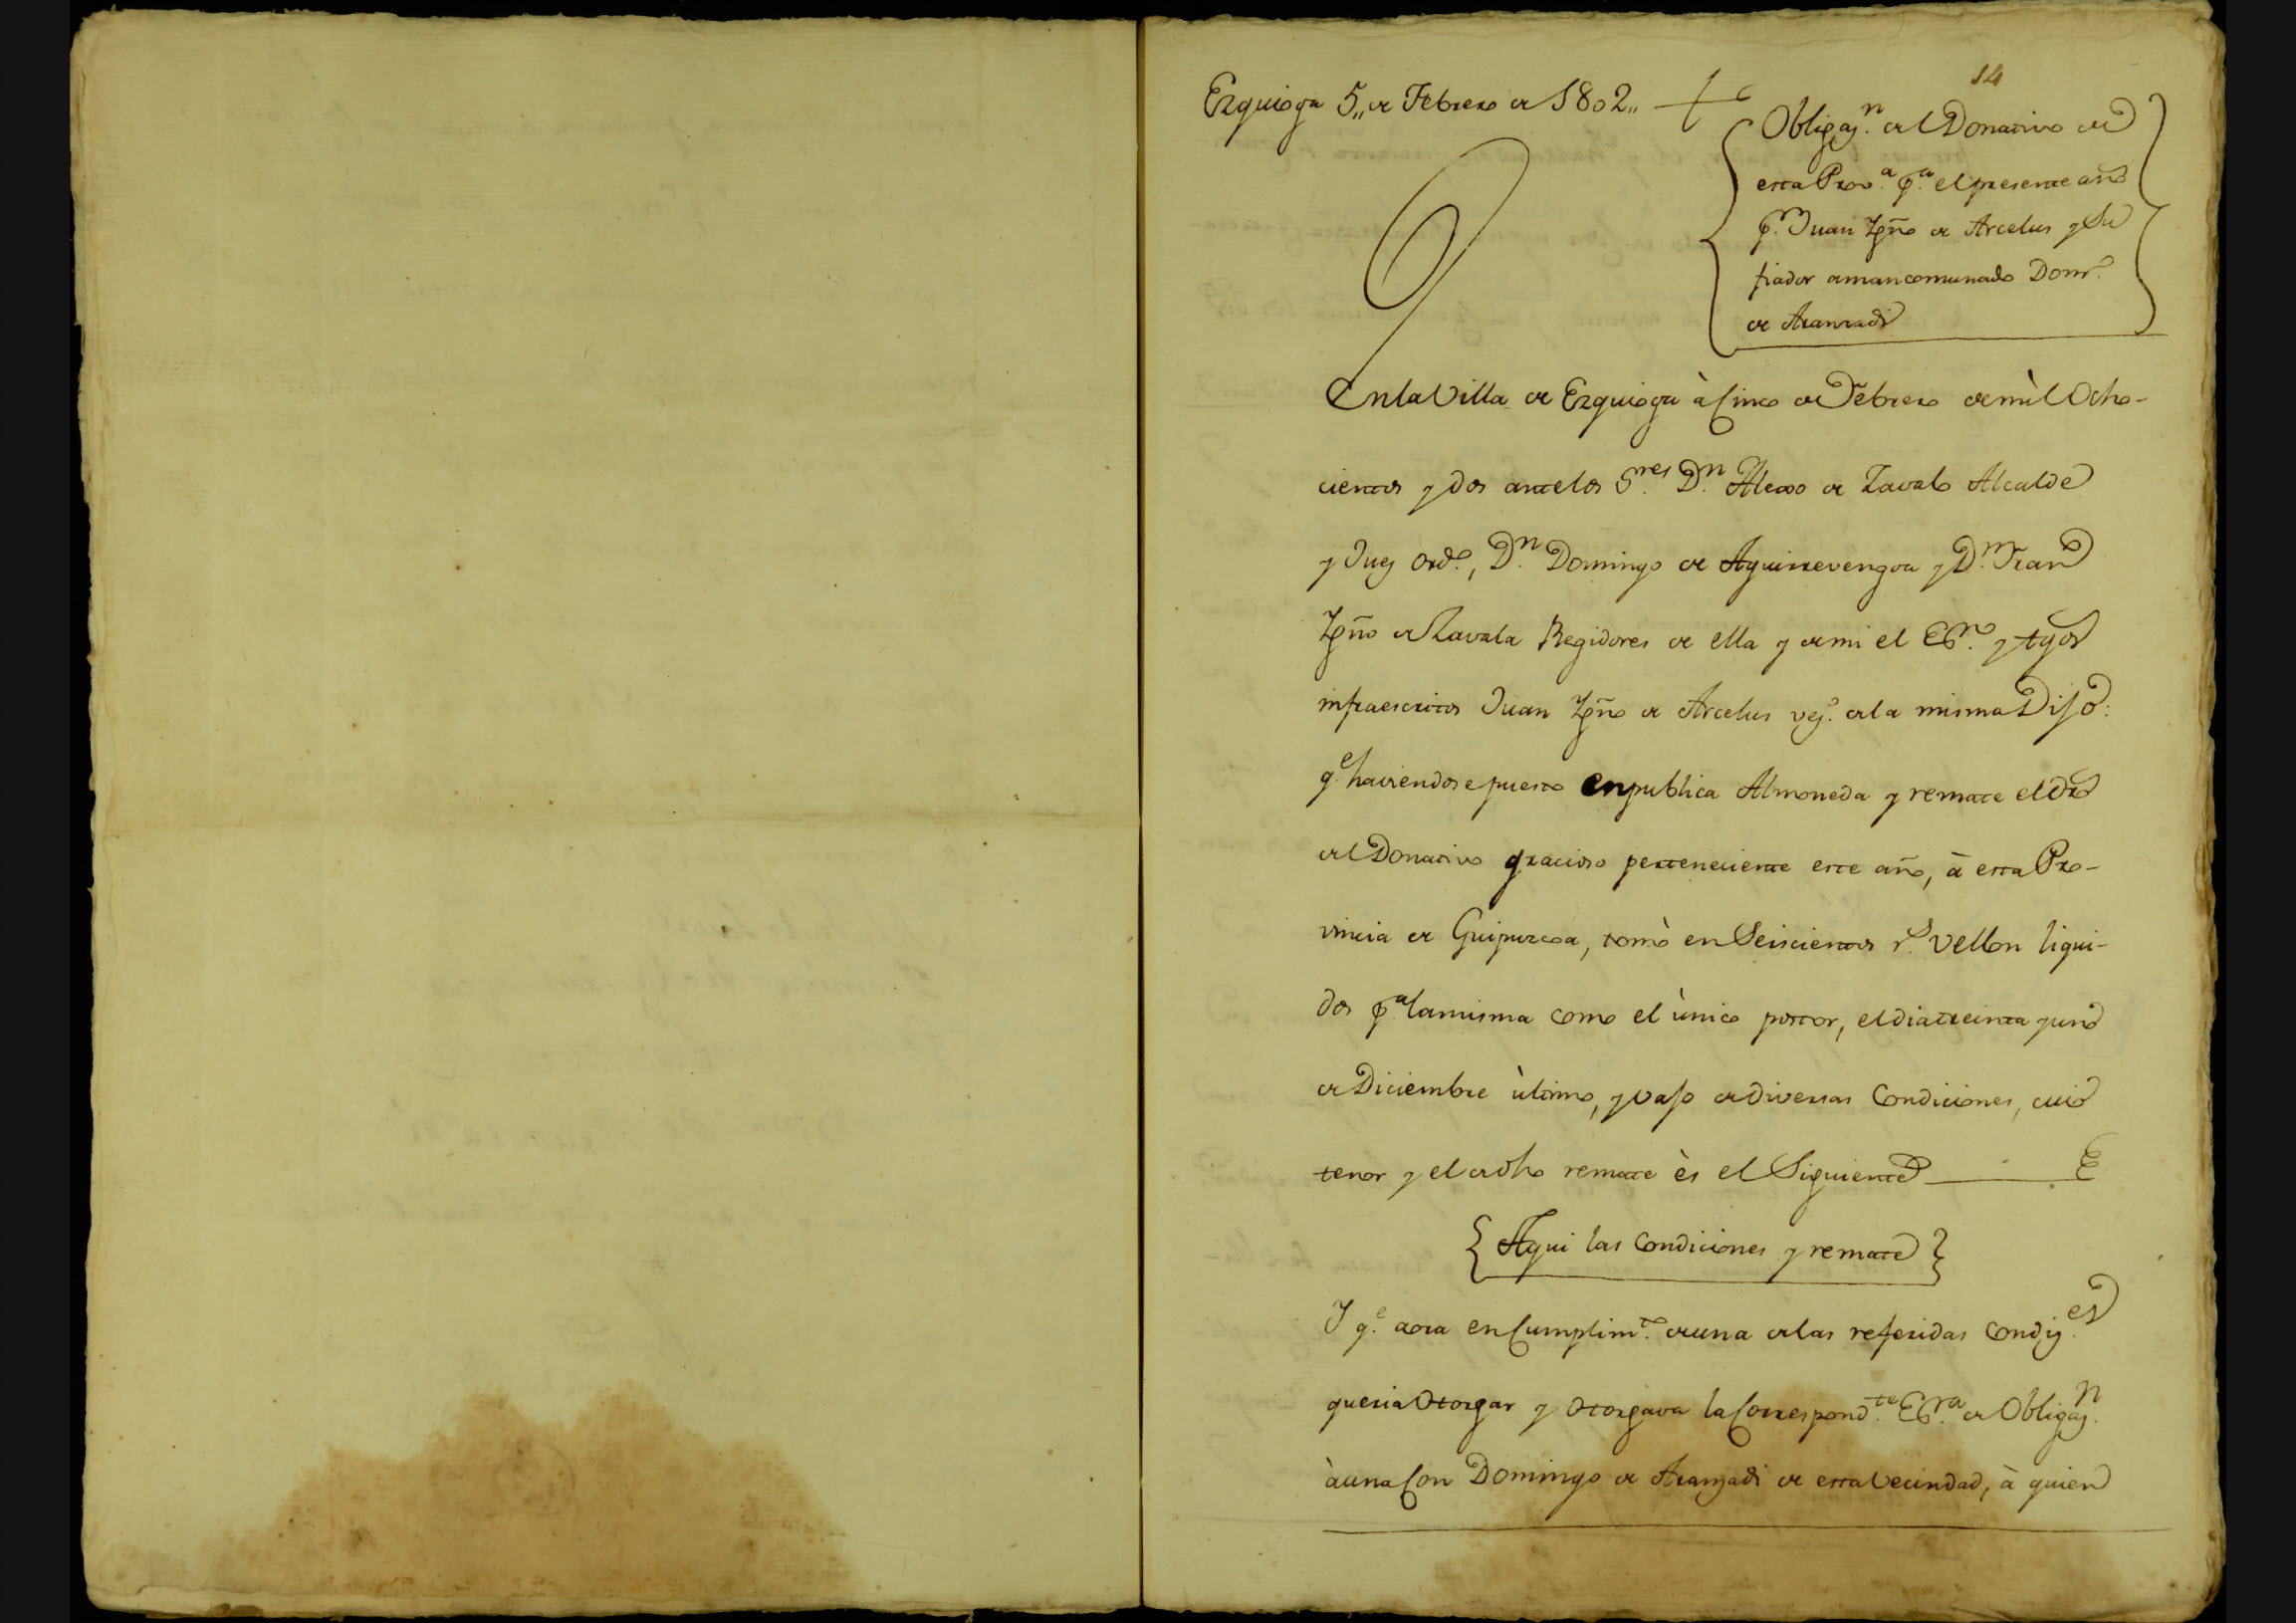 14
Ezquioga 5,, de Febrero de 1802,,
Obligaz.n del Donativo de
esta Prov.a p.a el presente año
p.r Juan Ygn.o de Arcelus y su
fiador amancomunado Dom.o
de Aranzadi
En la Villa de Ezquioga à Cinco de Febrero de mil Ocho-
cientos y dos ante los S.res D.n Alexo de Zavalo Alcalde
y Juez ord.o, D.n Domingo de Aguirrevengoa y D.n Fran.co
Ygn.o de Zavala Regidores de ella y de mi el Es.no y tgos
infraescritos Juan Ygn.o de Arcelus vez.o de la misma Dijo:
q.e haviendose puesto en publica Almoneda y remate el dro
del Donativo gracioso perteneciente este año, à esta Pro-
vincia de Guipuzcoa, tomò en Seiscientos r.s vellon liqui-
dos p.a la misma como el ùnico postor, el dia treinta y uno
de Diciembre ùltimo, y vajo de diversas Condiciones, cuio
tenor y el de dho remate ès el Siguiente
{ Aqui las Condiciones y remate }
Y q.e aora en Cumplim.to de una de las referidas Condiz.es
queria Otorgar y Otorgava la Correspond.te Es.ra de Obligaz.n
à una Con Domingo de Aranzadi de esta Vecindad, à quien